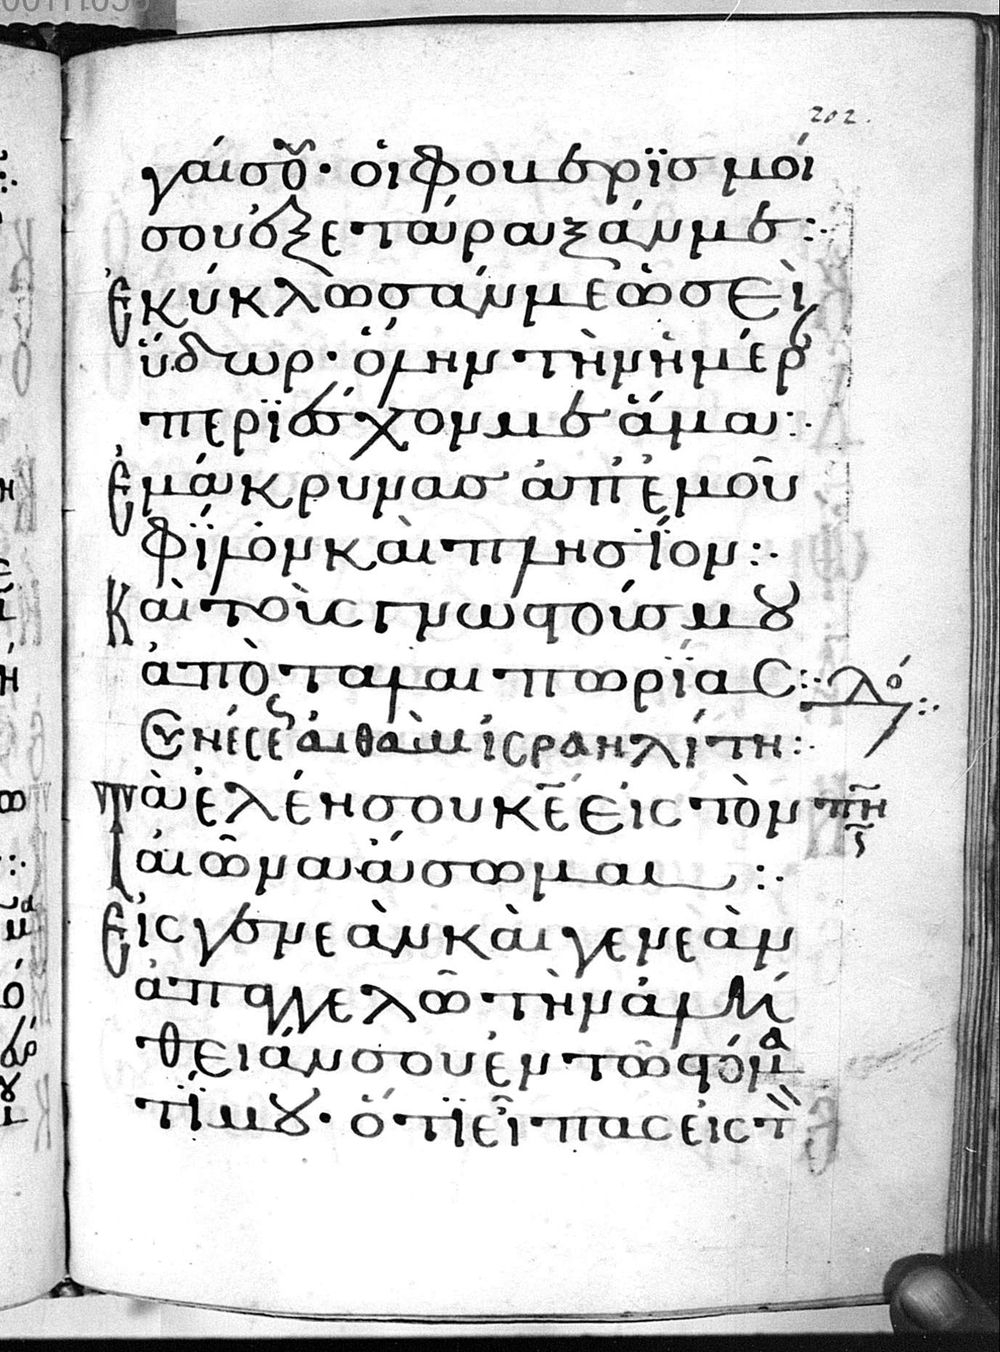 202.
γαί σου· οἱ φοβερισμοί
σου ἐξετάραξάν με:·
Ἐκύκλωσάν με ὡσεὶ
ὕδωρ· ὅλην τὴν ἡμέρ
περιέσχον με ἅμα:·
Ἐμάκρυνας ἀπ' ἐμοῦ
φίλον καὶ πλησίον:·
Καὶ τοὺς γνωστούς μου
ἀπὸ ταλαιπωρίας:·
Συνέσε αιθαμ ἰσραηλίτη:·
Τὰ ἐλέη σου κε εἰς τὸν πη
αἰῶνα ᾄσομαι:·
Εἰς γενεὰν καὶ γενεὰν
ἀπαγγελῶ τὴν ἀλή
θειάν σου ἐν τῷ στόμα
τί μου· ὅτι εἶπας εἰς τ